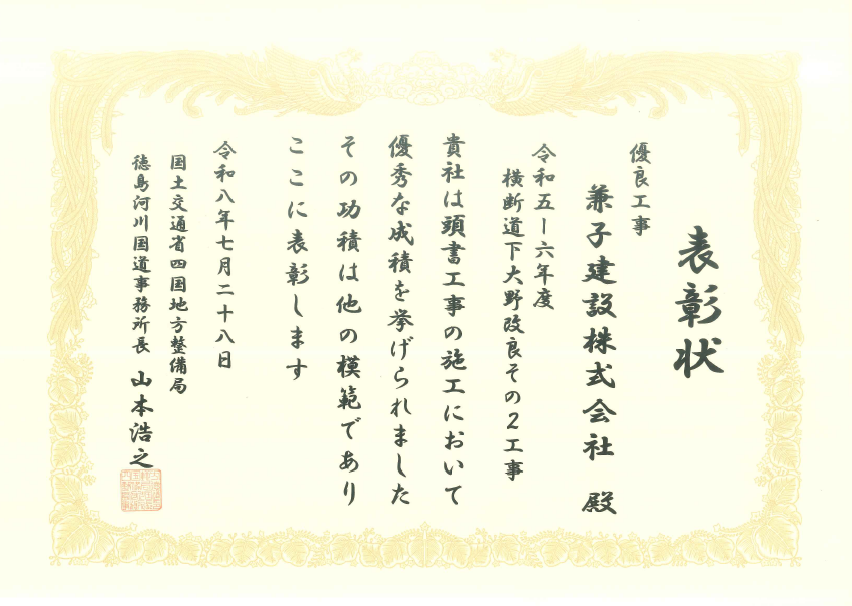 表彰状
優良工事
兼子建設株式会社 殿
令和五ー六年度
横断道下大野改良その2工事
貴社は頭書工事の施工において
優秀な成績を挙げられました
その功積は他の模範であり
ここに表彰します
令和八年七月二十八日
国土交通省四国地方整備局
徳島河川国道事務所長 山本浩之